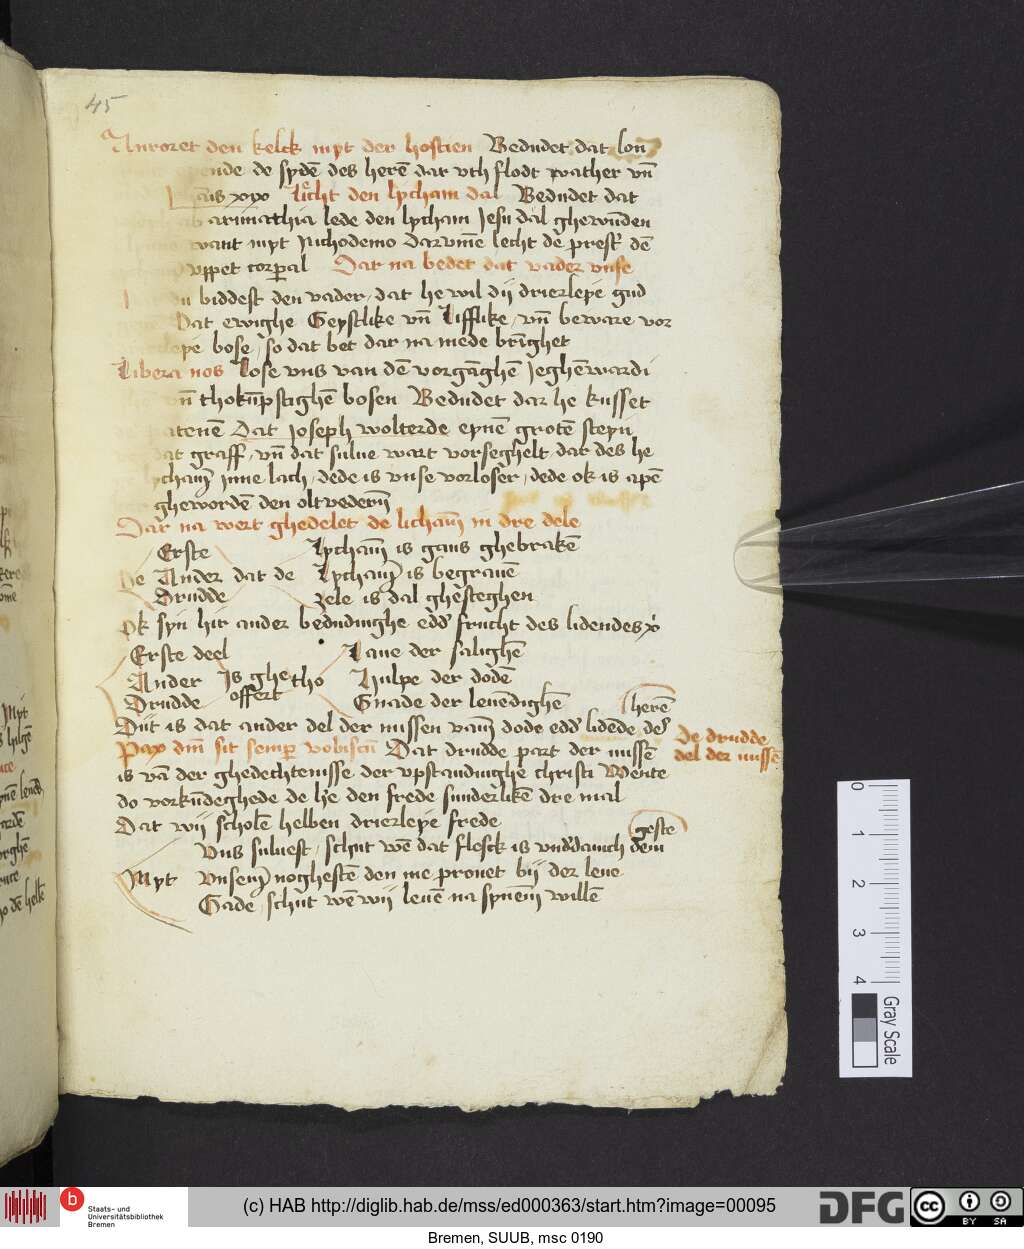 45
Anroret den kelck myt der hostien Bedudet dat lon
ende de sydē des herē dar vth flodt wather vn̄
xix Licht den lycham dal Bedudet dat
arimathia lede den lycham Jesu dal ghewūden
want myt Nichodemo darvmē lecht de prest' dē
vppet corꝑal Dar na bedet dat vader vnse
biddest den vader dat he wil dij drierleye gud
Dat ewighe Geystlike vn̄ Lifflike vn̄ beware vor
leye bose so dat bet dar na mede brīghet
Libera nos Lose vns van dē vorgāghē Jeghēwardi
vn̄ thokūpstighē bosen Bedudet dar he kusset
patenē Dat Joseph wolterde eynē grotē steyn
dat graff vn̄ dat sulue wart vorseghelt dar des he
lychā Inne lach dede is vnse vorloser dede ok is apē
ghewordē den oltvederē
Dar na wert ghedelet de lichā in dre dele
Erste Lychā is gans ghebrakē
De Ander dat de Lychā is begrauē
Drudde zele is dal ghesteghen
Ok syn hir ander bedudinghe edd' frucht des lidendes
Erste deel Laue der salighē
Ander Is ghe tho Hulpe der dodē
Drudde offert Gnade der leuēdighē
herē
Dit is dat ander del der missen vā dode edd' lidēde des
Pax dn̄i sit semꝑ vobiscū Dat drudde part der missē
De drudde
del der missē
is vā der ghedechtenisse der vpstandinghe christi Wente
do vorkūdeghede de he den frede sunderlikē dre mal
Dat wij scholē hebben drierleye frede
geste
Vns suluest schut wē dat flesck is vnddanich dem
Myt Vnsem neghestē den me prouet bij der leue
Gade schut wē wij leuē na synē willē
0 1 2 3 4
Gray Scale
Staats- und
Universitätsbibliothek
Bremen
(c) HAB http://diglib.hab.de/mss/ed000363/start.htm?image=00095
DFG
cc BY SA
Bremen, SUUB, msc 0190